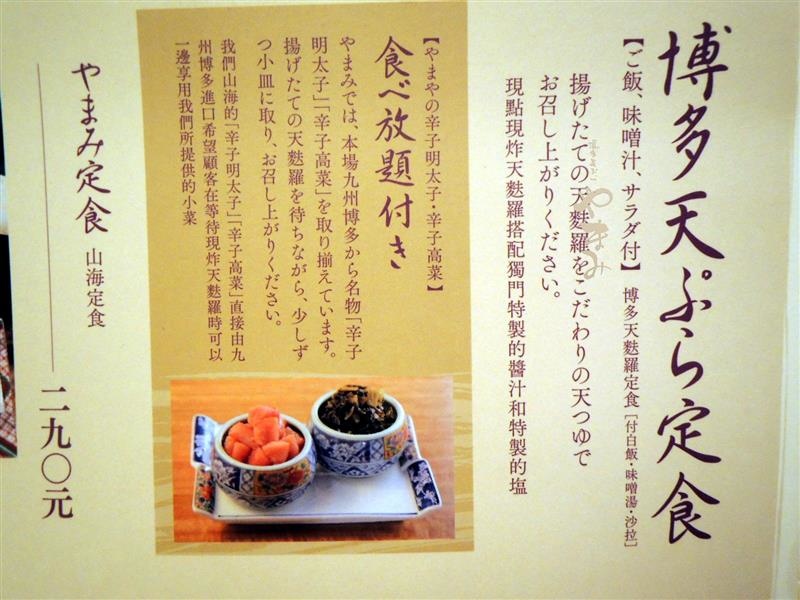 博多天ぷら定食
【ご飯、味噌汁、サラダ付】 博多天麩羅定食 [付白飯・味噌湯・沙拉]
揚げたての天麩羅をこだわりの天つゆで
お召し上がりください。
現點現炸天麩羅搭配獨門特製的醬汁和特製的塩
やまみ
【やまやの辛子明太子・辛子高菜】
食べ放題付き
やまみでは、本場九州博多から名物「辛子
明太子」「辛子高菜」を取り揃えています。
揚げたての天麩羅を待ちながら、少しず
つ小皿に取り、お召し上がりください。
我們山海的「辛子明太子」「辛子高菜」直接由九
州博多進口希望顧客在等待現炸天麩羅時可以
一邊享用我們所提供的小菜
やまみ定食 山海定食 二九〇元